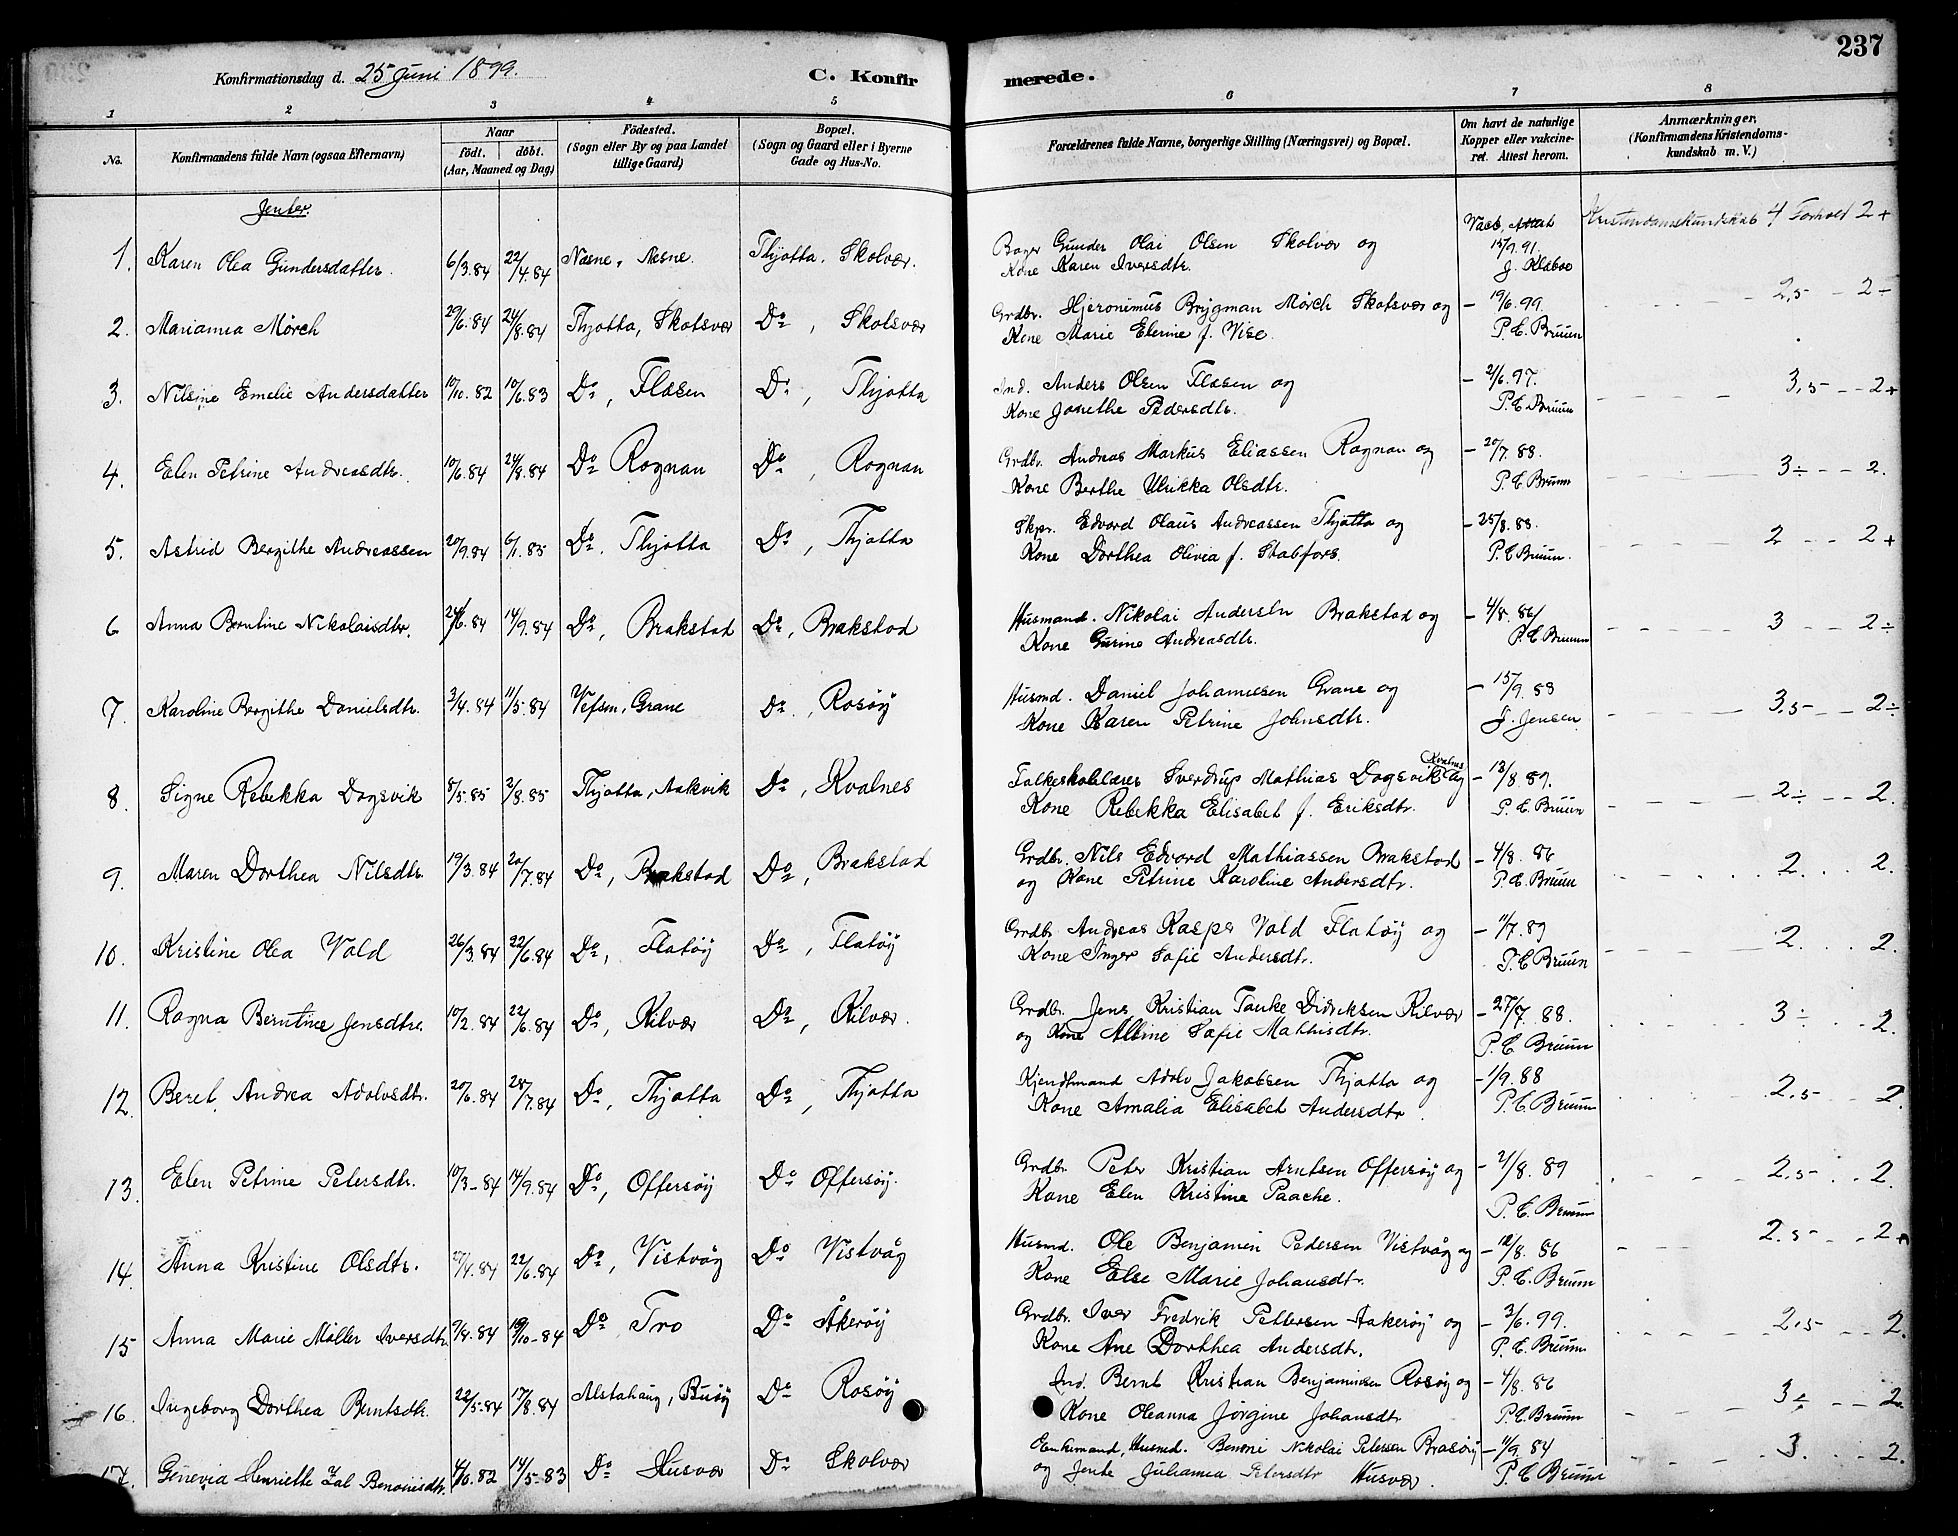 237
Konfirmationsdag d. 25 Juni 1899. C. Konfirmerede.
1 2 3 4 5 6 7 8
No. Konfirmandens fulde Navn (ogsaa Efternavn) Naar født. døbt. (Aar, Maaned og Dag) Fødested. (Sogn eller By og paa Landet tillige Gaard) Bopæl. (Sogn og Gaard eller i Byerne Gade og Hus-No. Forældrenes fulde Navne, borgerlige Stilling (Næringsvei) og Bopæl. Om havt de naturlige Kopper eller vakcineret. Attest herom. Anmærkninger. (Konfirmandens Kristendomskundskab m. V.)
Jenter.
1. Karen Olea Gundersdatter. 6/3.84 22/4.84 Næsne, Nesne. Thjøtta, Skolvær. Gunder Olai Olsen Skolvær og Vacc. Attest Kristendomskundskab 4 Forhold 2+
Kone Karen Iversdtr. 15/9.91. J. Klæboe
2. Marianna Mørch 29/6.84 24/8.84 Thjøtta, Skotsvær Do, Skolsvær Grdbr. Hjeronimus Brygman Mørch Skotsvær og - 19/6.99. 2,5 - - 2-
Kone Marie Elerine f. Vise. P. C. Bruun
3. Nilsine Emelie Andersdatter 10/10.82 10/6.83 Do, Flæsen Do, Thjøtta Ind. Anders Olsen Flæsen og - 2/6.97. 3,5 - - 2+
Kone Jonethe Pedersdtr. P. C. Bruun
4. Elen Petrine Andreasdtr. 10/6.84 24/8.84 Do Rognan Do, Rognan Grdbr. Andreas Markus Eliassen Rognan og - 20/7.88. 3÷ - - 2.
Kone Berthe Ulrikka Olsdtr. P. C. Bruun
5. Astrid Bergithe Andreassen 20/9.84 6/1.85 Do. Thjøtta Do, Thjøtta Skpr. Edvard Olaus Andreassen Thjøtta og - 25/8.88. 2 - - 2+
Kone Dorthea Olivea f. Stabfors. P. C. Bruun.
6 Anna Berntine Nikolaisdtr. 24/6.84 14/9.84 Do, Brakstad Do, Brakstad Husmand. Nikolai Andersen Brakstad og - 4/8.86/ 3 - - 2÷
Kone Gurine Andreasdtr. P. C. Bruun
7. Karoline Bergithe Danielsdtr. 3/4.84 11/5.84 Vefsen, Grane Do, Rosøy Husmd. Daniel Johannesen Grane og - 15/9.88 3,5 - - 2÷
Kone Karen Petrine Johnsdtr. J. Jensen
8. Signe Rebekka Dagsvik 8/5.85 2/8.85 Thjøtta, Aakvik Do, Kvalnes Folkeskolelærer Sverdrup Mathias Dagsvik Kvalnes og - 13/8.89. 2÷ - - 2.
Kone Rebekka Elisabet f. Eriksdtr. P. C. Bruun
9. Maren Dorthea Nilsdtr. 19/3.84 20/7.84 Do, Brakstad Do, Brakstad Grdbr. Nils Edvard Mathiassen Brakstad - 4/8.86 2. . . 2.
og Kone Petrine Karoline Andersdtr. P. C. Bruun
10. Kristine Olea Vold 26/3.84 22/6.84 Do, Flatøy Do, Flatøy Grdbr. Andreas Kasper Vold Flatøy og - 11/7.89 2. . . 2.
Kone Inger Sofie Andersdtr. P. C Bruun
11. Ragna Berntine Jensdtr. 10/2.84 22/6.84 Do, Kilvær Do, Kilvær. Grdbr. Jens Kristian Tanke Didriksen Kilvær - 27/7.88. 3÷ . . 2.
og Kone Albine Sofie Mathisdtr. P. C Bruun
12. Beret Andrea Adolvsdtr. 20/6.84 28/7.84 Do, Thjøtta Do, Thjøtta Kjendtmand Adolv Jakobsen Thjøtta og - 1/9.88 2,5 - - 2.
Kone Amalia Elisabet Andersdtr. P. C. Bruun
13. Elen Petrine Petersdtr. 10/3-84 14/9.84 Do, Offersøy Do Offersøy. Grdbr. Peter Kristian Arntsen Offersøy og - 2/8.89 2,5 . . 2.
Kone Elen Kristina Paache. P. C. Bruun
14. Anna Kristine Olsdtr. 22/6.84 Do, Vistvåg Do Vistvåg Husmd. Ole Benjamin Pedersen Vistvåg og - 12/8.86 2.5 - - 2+
Kone Else Marie Johansdtr. P. C. Bruun
15 Anna Marie Møller Iversdtr. 9/8.84 19/10-84 Do Tro Do Åkerøy Grdbr. Iver Fredrik Pettersen Aakerøy og - 3/6.99. 2,5 - - 2.
Kone Ane Dorthea Andersdtr. P. C. Bruun
16. Ingeborg Dorthea Berntsdtr. 22/5-84 17/8.84 Alstahaug, Buøy Do Rosøy Ind. Bernt Kristian Benjaminsen Rosøy og - 4/8.86 3÷ - - 2.
Kone Oleanna Jørgine Johansdtr P. C. Bruun
17. Genevia Henriette Zal Benonisdtr. 4/10.82 14/5-83 Do Husvær Do Skolvær Enkemand, Husmd. Benoni Nikolai Petersen Brasøy - 11/9.84 3. . . 2.
og Jente Juliannea Petersdtr Husvær. P. C Bruun